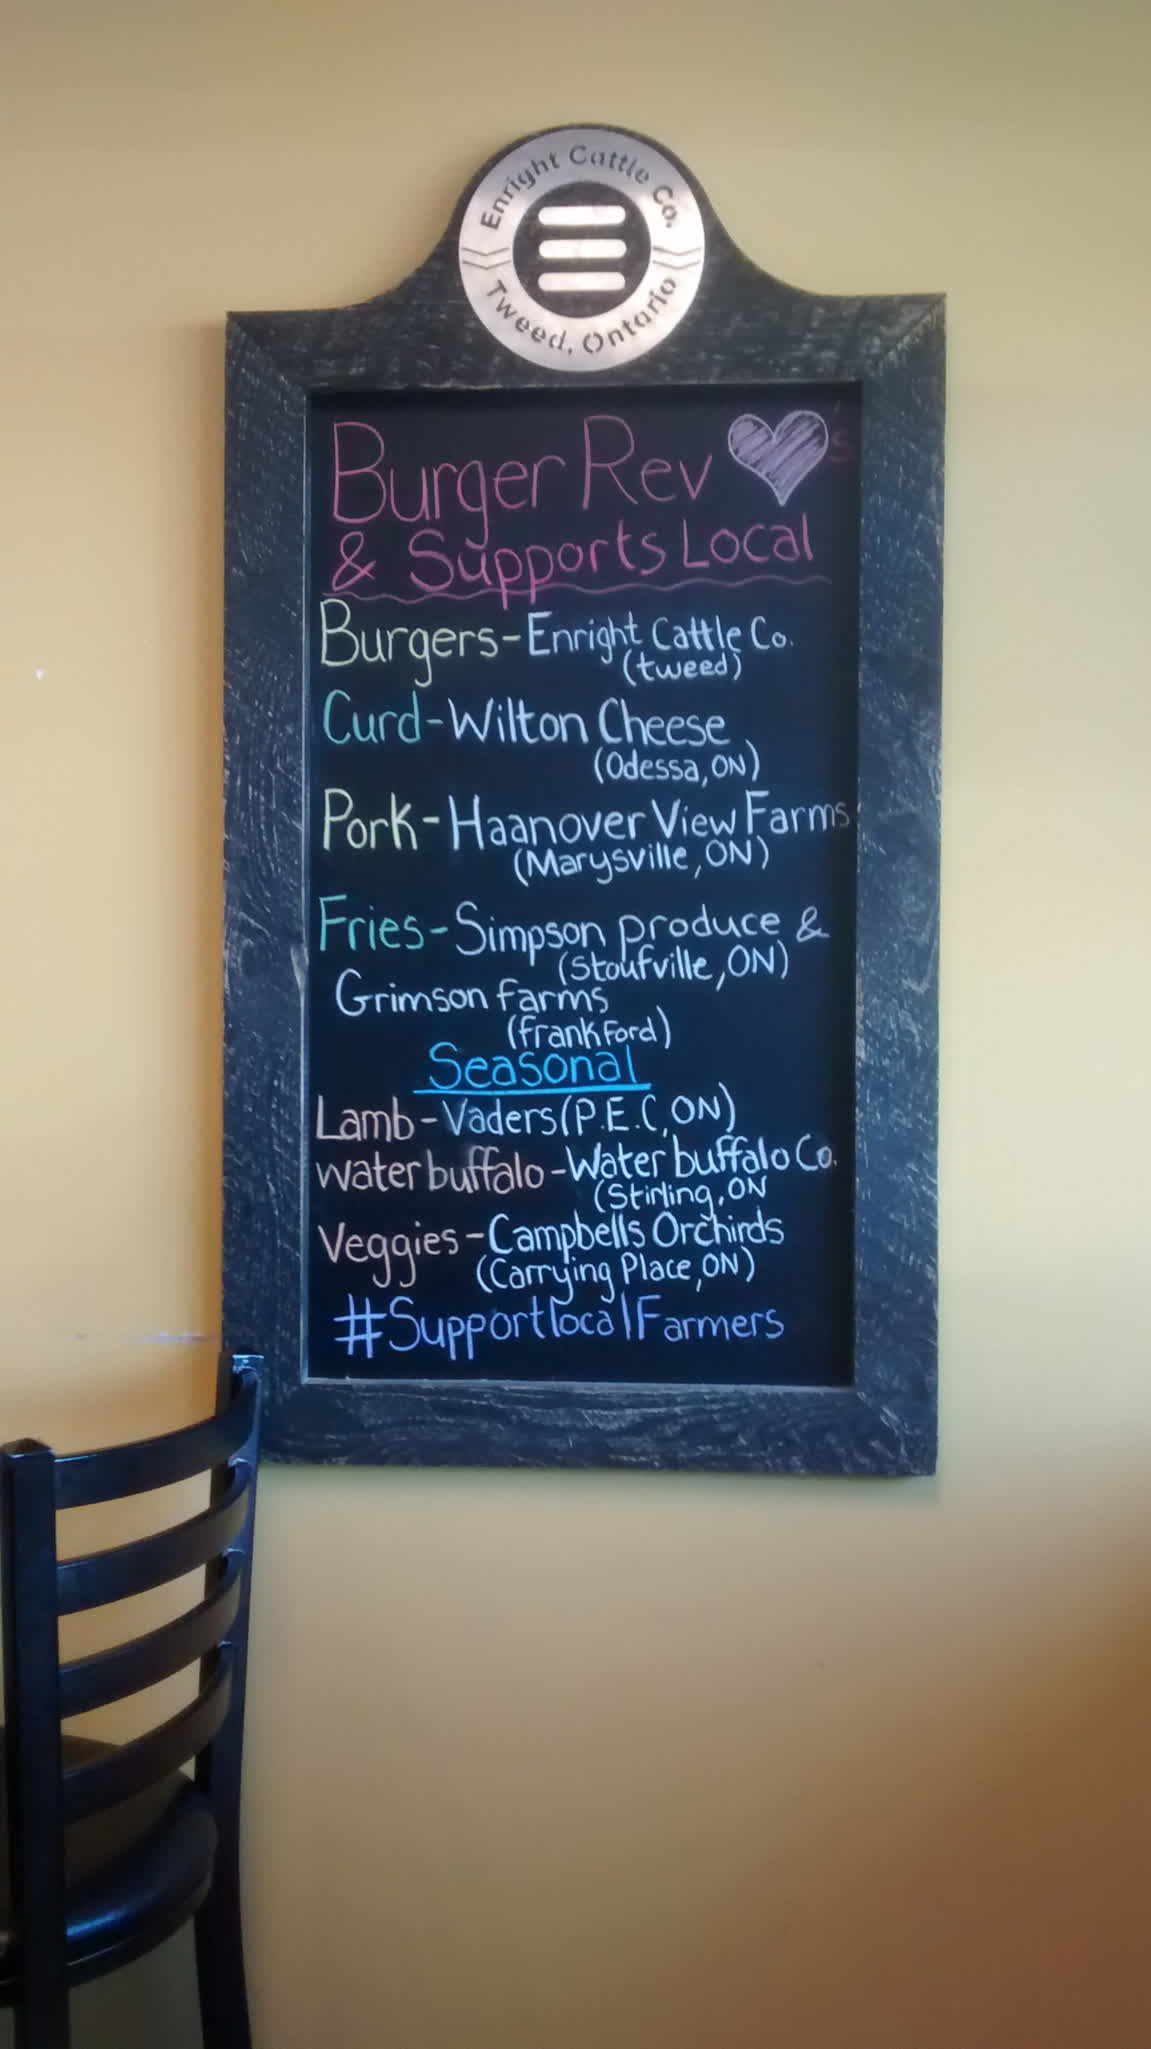 Enright Cattle Co.
Tweed, Ontario
Burger Rev 's
& Supports Local
Burgers - Enright Cattle Co.
(tweed)
Curd - Wilton Cheese
(Odessa, ON)
Pork - Haanover View Farms
(Marysville, ON)
Fries - Simpson produce &
(Stoufville, ON)
Grimson farms
(frankford)
Seasonal
Lamb - Vaders (P.E.C, ON)
water buffalo - Water buffalo Co.
(Stirling, ON
Veggies - Campbells Orchirds
(Carrying Place, ON)
#SupportlocalFarmers